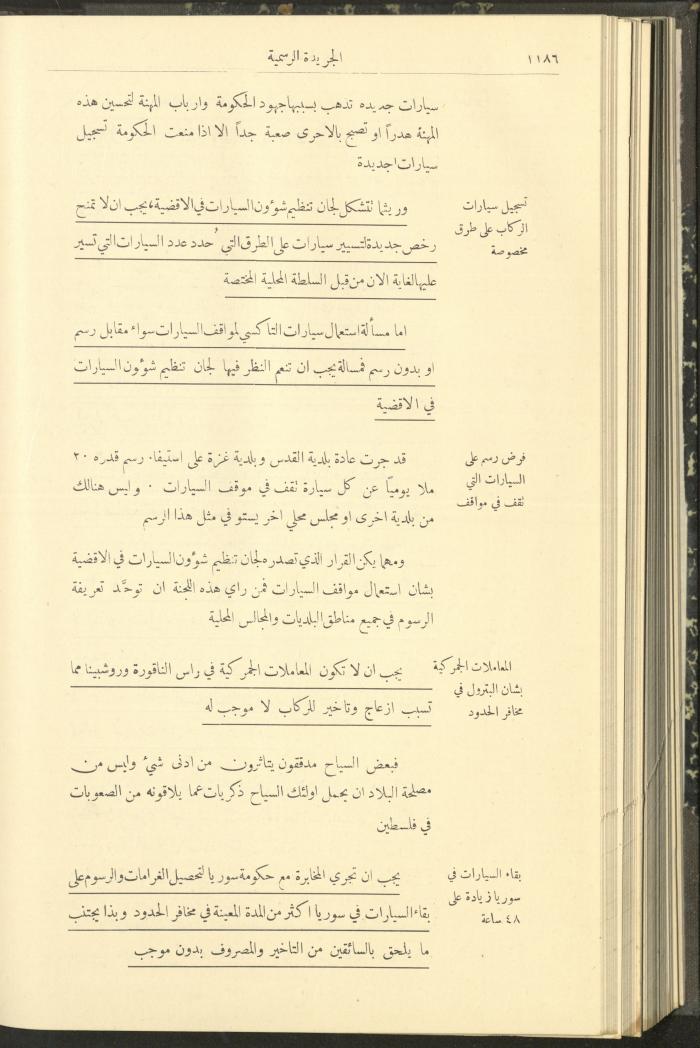 ١١٨٦
الجريدة الرسمية
سيارات جديده تذهب بسببها جهود الحكومة وارباب المهنة لتحسين هذه
المهنة هدراً او تصبح بالاحرى صعبة جداً الا اذا منعت الحكومة تسجيل
سيارات اجديدة
تسجيل سيارات
الركاب على طرق
مخصوصة
وريثما تتشكل لجان تنظيم شؤون السيارات في الاقضية، يجب ان لا تمنح
رخص جديدة لتسيير سيارات على الطرق التي ُحدد عدد السيارات التي تسير
عليها لغاية الان من قبل السلطة المحلية المختصة
اما مسألة استعمال سيارات التاكسي لمواقف السيارات سواء مقابل رسم
او بدون رسم فمسالة يجب ان تنعم النظر فيها لجان تنظيم شؤون السيارات
في الاقضية
فرض رسم على
السيارات التي
تقف في مواقف
قد جرت عادة بلدية القدس وبلدية غزة على استيفاء رسم قدره ٢٠
ملا يومياً عن كل سيارة تقف في موقف السيارات . وليس هنالك
من بلدية اخرى او مجلس محلي اخر يستوفي مثل هذا الرسم
ومهما يكن القرار الذي تصدره لجان تنظيم شؤون السيارات في الاقضية
بشان استعمال مواقف السيارات فمن راي هذه اللجنة ان توحَّد تعريفة
الرسوم في جميع مناطق البلديات والمجالس المحلية
المعاملات الجمركية
بشان البترول في
مخافر الحدود
يجب ان لا تكون المعاملات الجمركية في راس الناقورة وروشبينا مما
تسبب ازعاج وتاخير للركاب لا موجب له
فبعض السياح مدققون يتاثرون من ادنى شيء وليس من
مصلحة البلاد ان يحمل اولئك السياح ذكريات عما يلاقونه من الصعوبات
في فلسطين
بقاء السيارات في
سوريا زيادة على
٤٨ ساعة
يجب ان تجري المخابرة مع حكومة سوريا لتحصيل الغرامات والرسوم على
بقاء السيارات في سوريا اكثر من المدة المعينة في مخافر الحدود وبذا يجتنب
ما يلحق بالسائقين من التاخير والمصروف بدون موجب